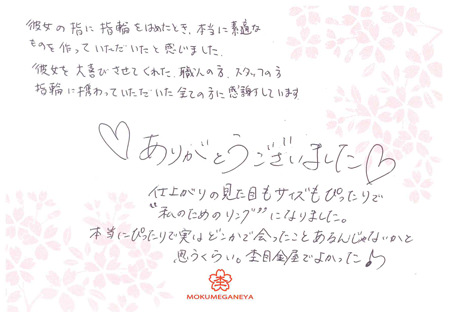 彼女の指に指輪をはめたとき、本当に素適な
ものを作っていただいたと感じました。
彼女を大喜びさせてくれた、職人の方、スタッフの方
指輪に携わっていただいた全ての方に感謝しています
ありがとうございました
仕上がりの見た目もサイズもぴったりで
"私のためのリング"になりました。
本当にぴったりで実はどこかで会ったことあるんじゃないかと
思うくらい。杢目金屋でよかった♪
杢
MOKUMEGANEYA